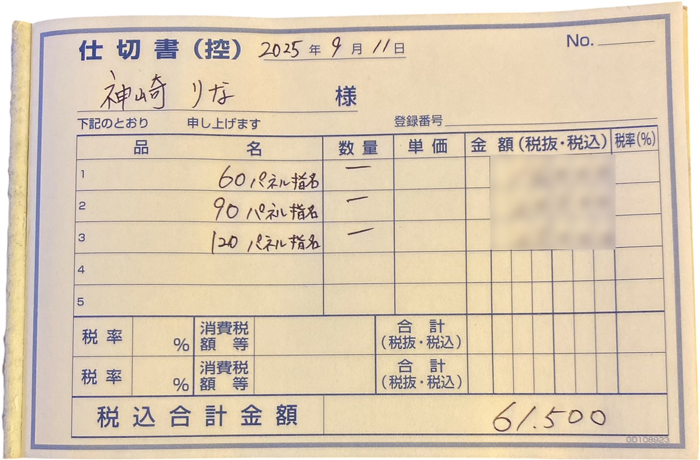 仕切書(控) 2025年9月11日 No.
神崎 りな 様
下記のとおり 申し上げます 登録番号
品名 数量 単価 金額(税抜・税込) 税率(%)
1 60パネル指名 一
2 90パネル指名 一
3 120パネル指名 一
4
5
税率 % 消費税額等 合計(税抜・税込)
税率 % 消費税額等 合計(税抜・税込)
税込合計金額 61.500